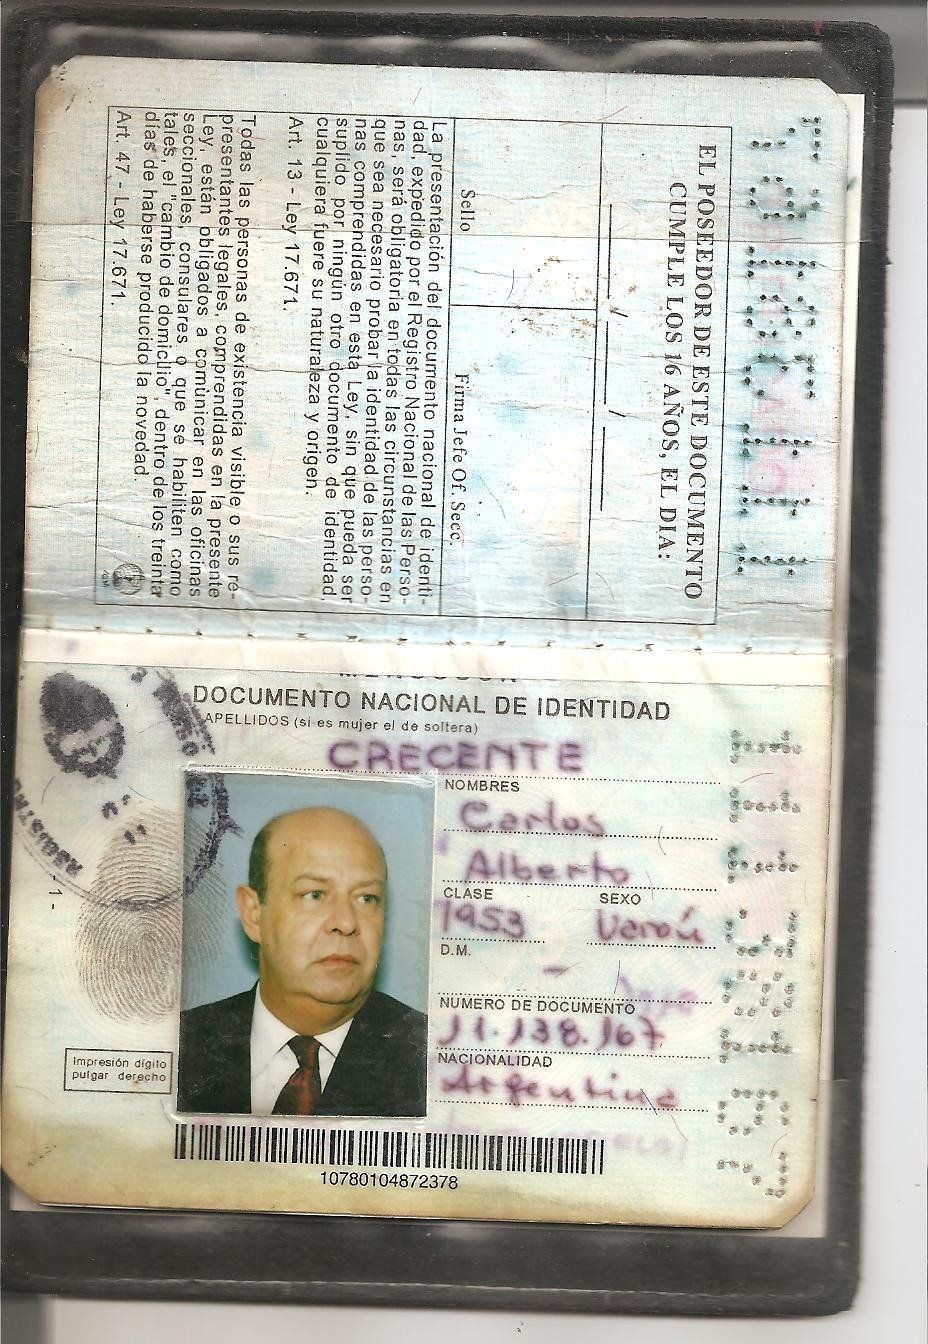 EL POSEEDOR DE ESTE DOCUMENTO
CUMPLE LOS 16 AÑOS, EL DIA:
/ /
Sello
Firma Jefe Of. Secc.
La presentación del documento nacional de identi-
dad, expedido por el Registro Nacional de las Perso-
nas, será obligatoria en todas las circunstancias en
que sea necesario probar la identidad de las perso-
nas comprendidas en esta Ley, sin que pueda ser
suplido por ningún otro documento de identidad,
cualquiera fuere su naturaleza y origen.
Art. 13 - Ley 17.671.
Todas las personas de existencia visible o sus re-
presentantes legales, comprendidas en la presente
Ley, están obligados a comunicar en las oficinas
seccionales, consulares o que se habiliten como
tales, el "cambio de domicilio" dentro de los treinta
días de haberse producido la novedad.
Art. 47 - Ley 17.671.
DOCUMENTO NACIONAL DE IDENTIDAD
APELLIDOS (si es mujer el de soltera)
CRECENTE
NOMBRES
Carlos
Alberto
CLASE SEXO
1953 Varón
D.M.
-
NUMERO DE DOCUMENTO
11.138.167
NACIONALIDAD
Argentina
- 1 -
Impresión dígito
pulgar derecho
10780104872378
11138167